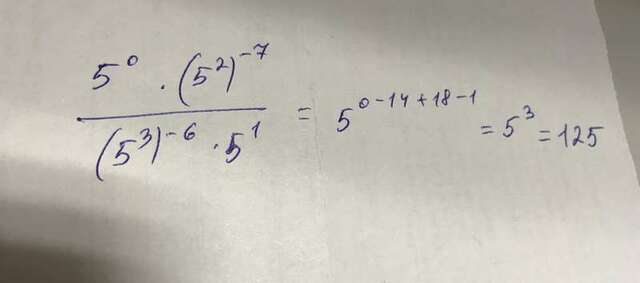 5⁰ · (5²)⁻⁷ / (5³)⁻⁶ · 5¹ = 5⁰⁻¹⁴⁺¹⁸⁻¹ = 5³ = 125